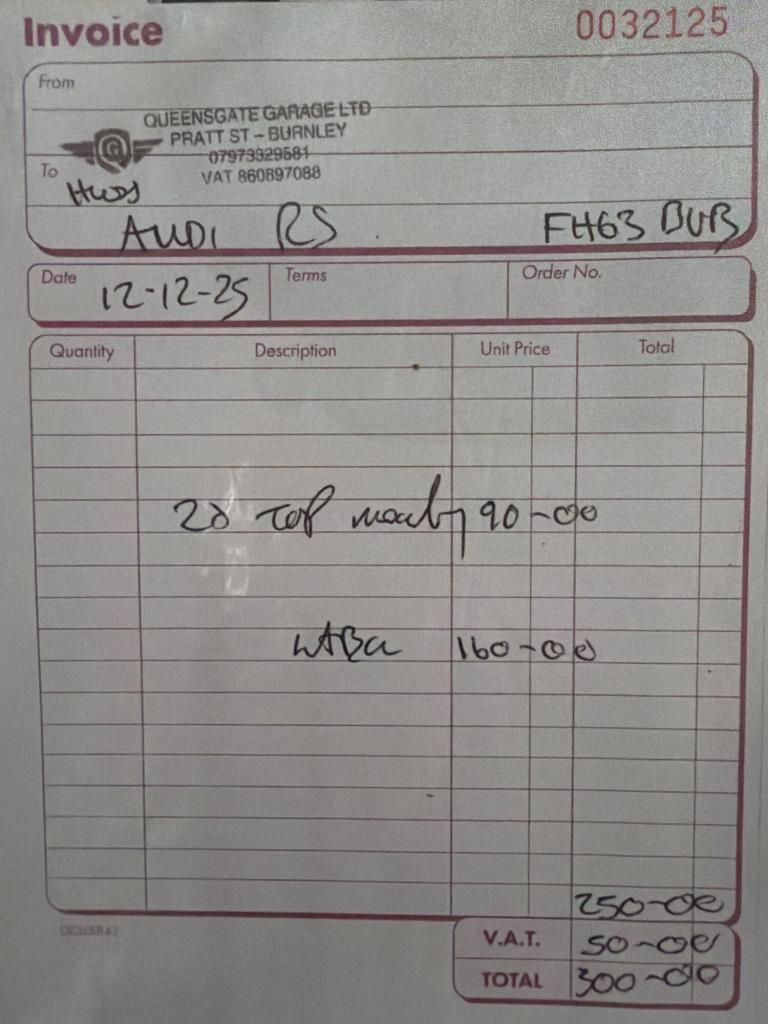 Invoice
0032125
From
QUEENSGATE GARAGE LTD
PRATT ST - BURNLEY
07973929581
VAT 860897088
To
AUDI RS
FH63 BUB
Date
12-12-25
Terms
Order No.
Quantity Description Unit Price Total
Top 90-00
160-00
250-00
V.A.T. 50-00
TOTAL 300-00